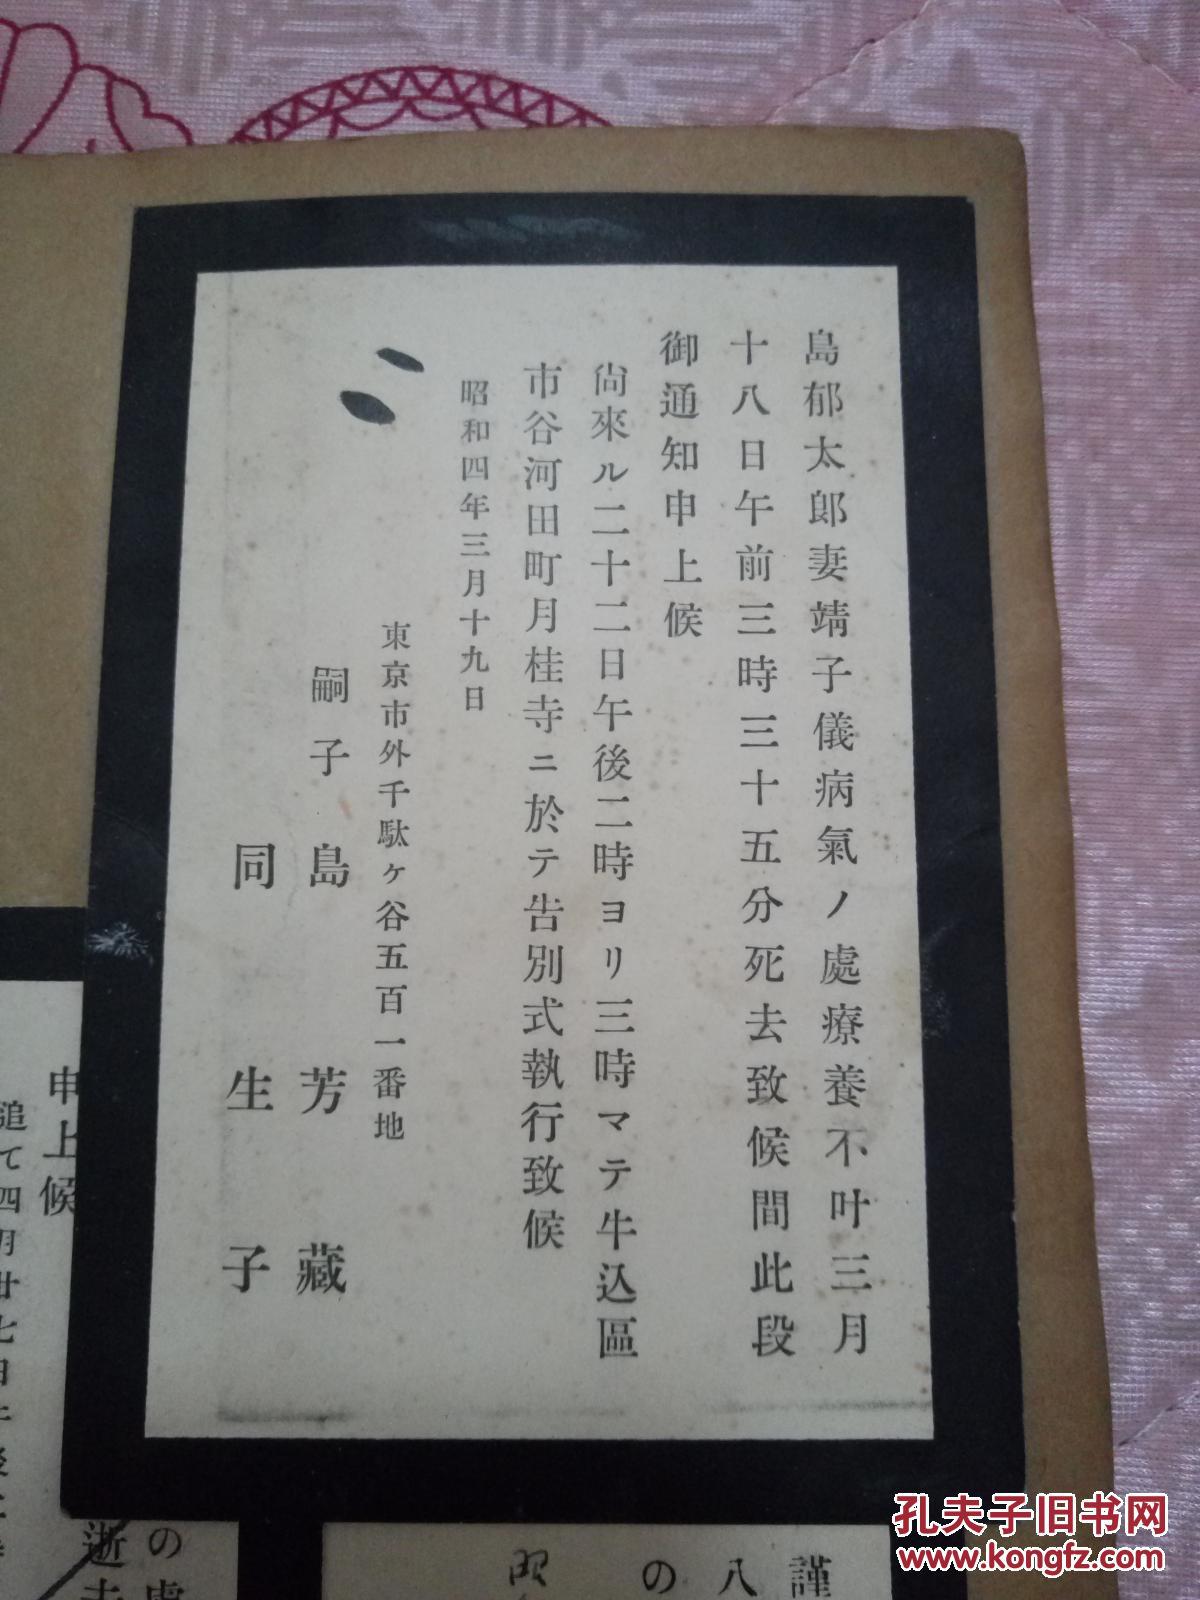 島郁太郎妻靖子儀病氣ノ處療養不叶三月
十八日午前三時三十五分死去致候間此段
御通知申上候
尙來ル二十二日午後二時ヨリ三時マテ牛込區
市谷河田町月桂寺ニ於テ告別式執行致候
昭和四年三月十九日
東京市外千駄ケ谷五百一番地
嗣子島芳藏
同生子
申上候
追て四月廿七日午後
の處
逝去
謹
八
の
孔夫子旧书网
www.kongfz.com